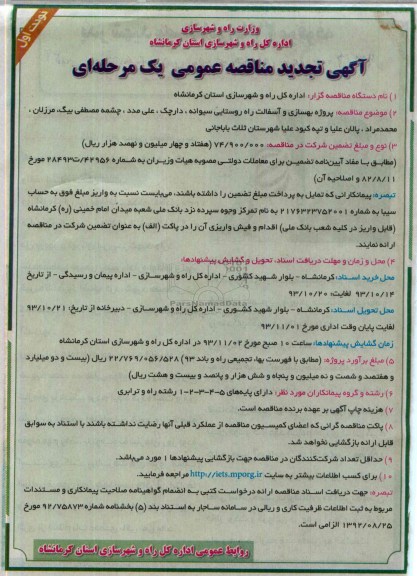 نوبت اول
وزارت راه و شهرسازی
اداره کل راه و شهرسازی استان کرمانشاه
آگهی تجدید مناقصه عمومی یک مرحله‌ای
۱) نام دستگاه مناقصه گزار: اداره کل راه و شهرسازی استان کرمانشاه
۲) موضوع مناقصه: پروژه بهسازی و آسفالت راه روستایی سیوانه ، دارچک ، علی مدد ، چشمه مصطفی بیگ، مرزلان ،
محمدمراد ، پالان علیا و تپه کبود علیا شهرستان ثلاث باباجانی
۳) نوع و مبلغ تضمین شرکت در مناقصه: ۷۴/۹۰۰/۰۰۰ (هفتاد و چهار میلیون و نهصد هزار ریال)
(مطابق با مفاد آیین‌نامه تضمین برای معاملات دولتی مصوبه هیات وزیران به شماره ۴۲۹۵۶/ت۲۸۴۹۳ مورخ
۸۲/۸/۱۱ و اصلاحیه آن)
تبصره: پیمانکارانی که تمایل به پرداخت مبلغ تضمین را داشته باشند، می‌بایست نسبت به واریز مبلغ فوق به حساب
سیبا به شماره ۲۱۷۶۴۲۳۷۵۲۰۰۱ به نام تمرکز وجوه سپرده نزد بانک ملی شعبه میدان امام خمینی (ره) کرمانشاه
(قابل واریز در کلیه شعب بانک ملی) اقدام و فیش واریزی آن را در پاکت (الف) به عنوان تضمین شرکت در مناقصه
ارائه نمایند.
۴) محل و زمان و مهلت دریافت اسناد، تحویل و گشایش پیشنهادها:
محل خرید اسناد: کرمانشاه - بلوار شهید کشوری - اداره کل راه و شهرسازی - اداره پیمان و رسیدگی - از تاریخ
۹۳/۱۰/۱۴ لغایت: ۹۳/۱۰/۲۰
محل تحویل اسناد: کرمانشاه - بلوار شهید کشوری - اداره کل راه و شهرسازی - دبیرخانه از تاریخ: ۹۳/۱۰/۲۱
لغایت پایان وقت اداری مورخ ۹۳/۱۱/۰۱
زمان گشایش پیشنهادها: ساعت ۱۰ صبح مورخ ۹۳/۱۱/۰۲ در اداره کل راه و شهرسازی استان کرمانشاه
۵) مبلغ برآورد پروژه: (مطابق با فهرست بها، تجمیعی راه و باند ۹۳) ۲۲/۷۶۹/۰۵۶/۵۲۸ ریال (بیست و دو میلیارد
و هفتصد و شصت و نه میلیون و پنجاه و شش هزار و پانصد و بیست و هشت ریال)
۶) رشته و گروه پیمانکاران مورد نظر: دارای پایه‌های ۵-۴-۳-۲-۱ رشته راه و ترابری
۷) هزینه چاپ آگهی بر عهده برنده مناقصه است.
۸) پاکت مناقصه گرانی که اعضای کمیسیون مناقصه از عملکرد قبلی آنها رضایت نداشته باشند با استناد به سوابق
قابل ارائه بازگشایی نخواهد شد.
۹) حداقل تعداد شرکت‌کنندگان در مناقصه جهت بازگشایی پیشنهادها ۱ مورد می‌باشد.
۱۰) برای کسب اطلاعات بیشتر به سایت http://iets.mporg.ir مراجعه فرمایید.
تبصره: جهت دریافت اسناد مناقصه ارائه درخواست کتبی به انضمام گواهینامه صلاحیت پیمانکاری و مستندات
مربوط به ثبت اطلاعات ظرفیت کاری و ریالی در سامانه ساجار به استناد بند (۵) بخشنامه شماره ۹۲/۷۵۸۷۳ مورخ
۱۳۹۲/۰۸/۲۵ الزامی است.
روابط عمومی اداره کل راه و شهرسازی استان کرمانشاه